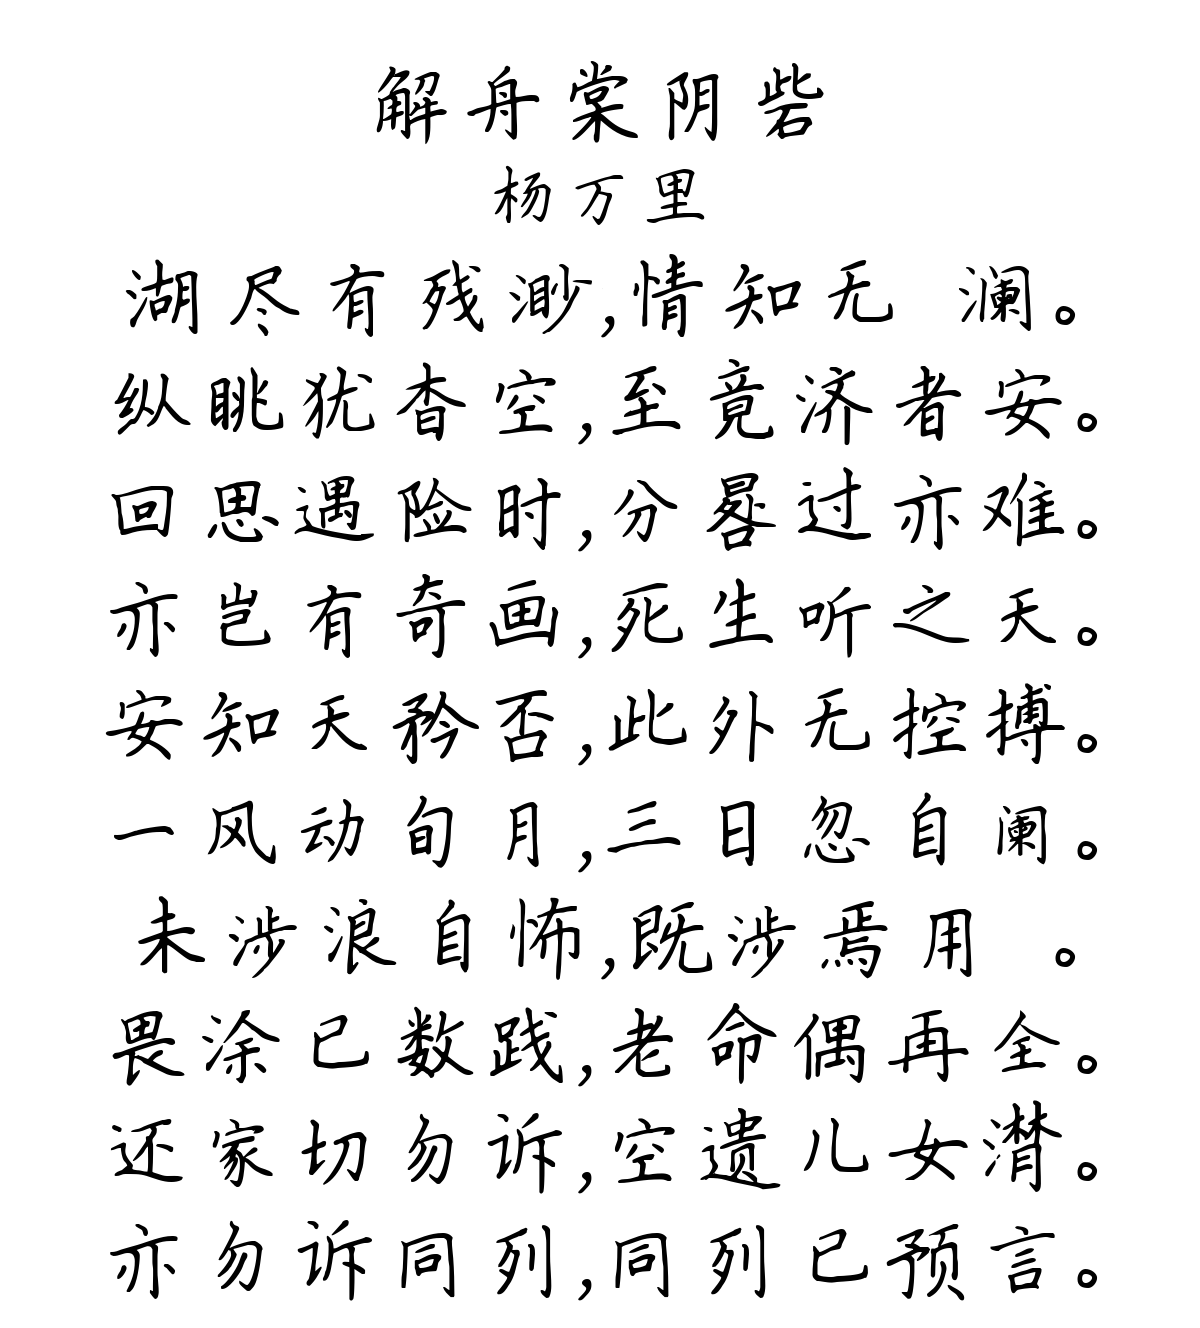 解舟棠阴砦
杨万里
湖尽有残渺,情知无 澜。
纵眺犹杳空,至竟济者安。
回思遇险时,分晷过亦难。
亦岂有奇画,死生听之天。
安知天矜否,此外无控搏。
一风动旬月,三日忽自阑。
未涉浪自怖,既涉焉用 。
畏涂已数践,老命偶再全。
还家切勿诉,空遗儿女潸。
亦勿诉同列,同列已预言。